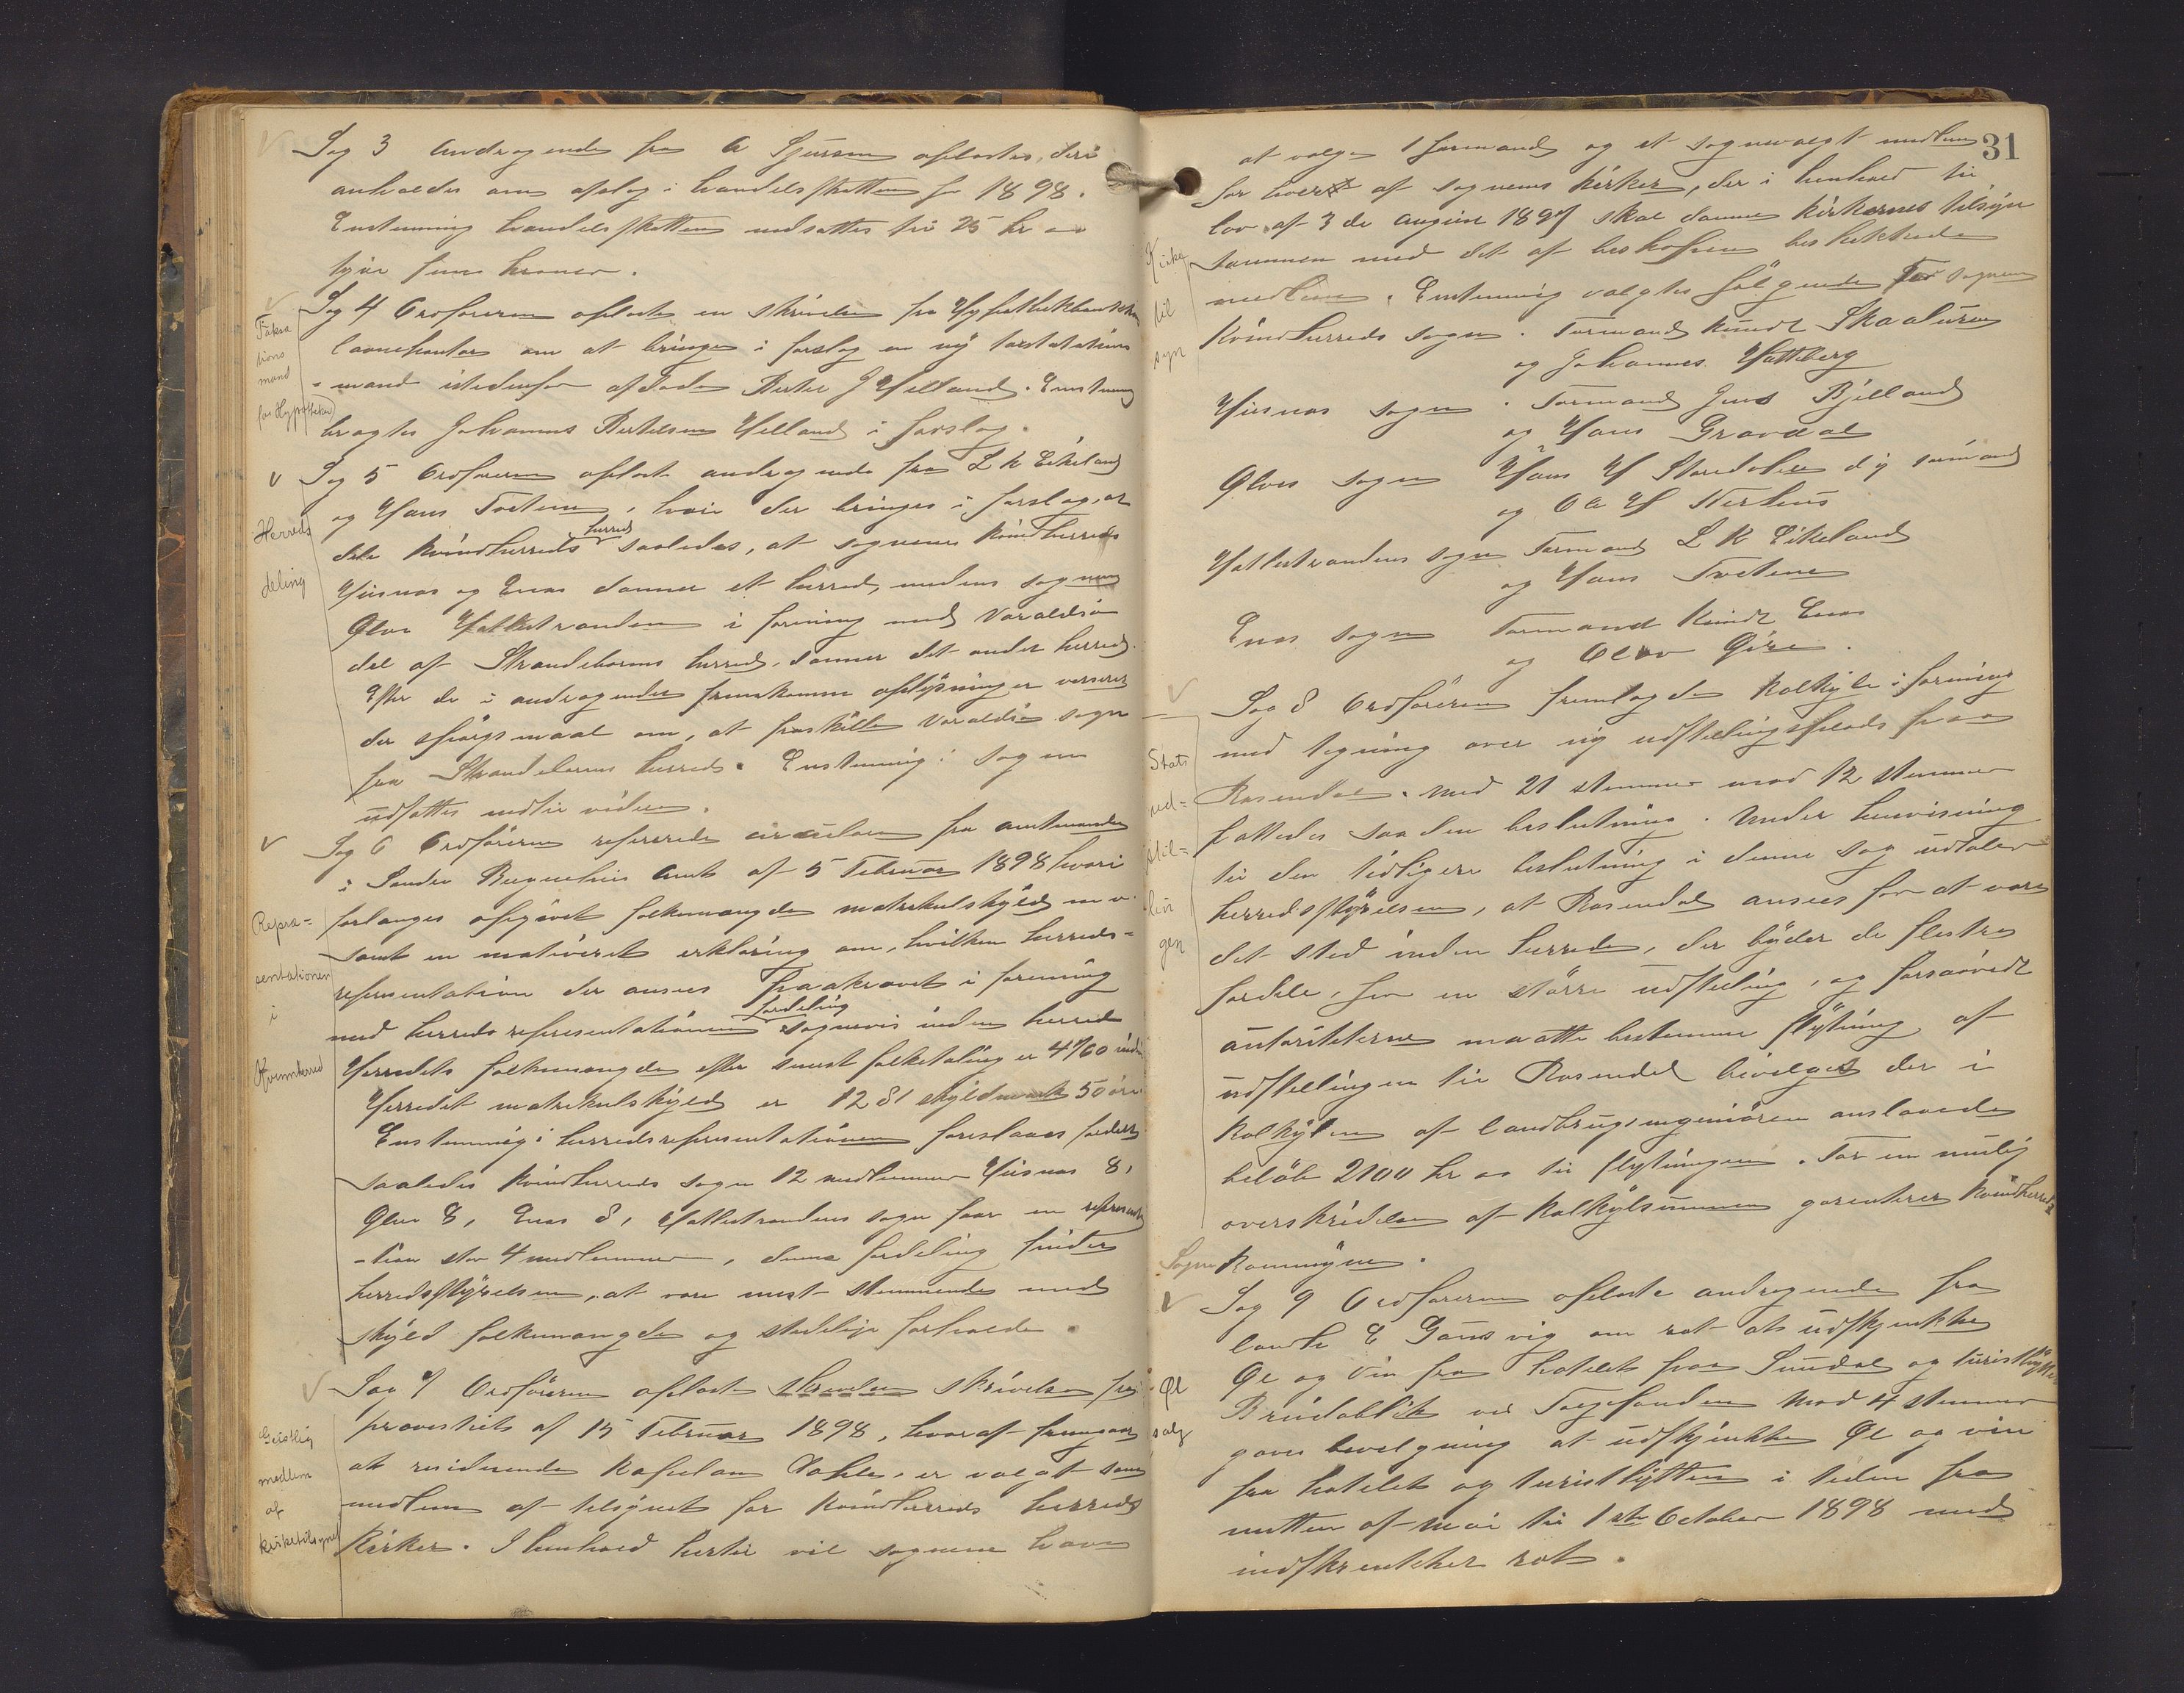 Sag 3 Andragende fra A Sjursen oplæstes, deri
anholdes om afslag i handelsskatten for 1898.
Enstemmig handelsskatten nedsattes til 25 kr =
tyve fem kroner.
Taksa
tions
mand
for Hypotheken
Sag 4 Ordføreren oplæste en skrivelse fra Hypothekbankens
laanekontor om at bringe i forslag en ny taxstations
= mand istedenfor afdøde Berte J Helland. Enstemmig
bragtes Johannes Bertelsen Helland i forslag.
Herreds
deling
Sag 5 Ordføreren oplæste andragende fra L K Eikeland
og Hans Tvetene, hvori der bringes i forslag, at
dele Kvindherreds herred saaledes, at sognene Kvindherred
Husnæs og Enæs danner et herred, medens sognene
Ølve Hatlestranden i forening med Varaldsø
del af Strandebarms herred, danner det andet herred.
Efter de i andragendet fremkomne oplysninger verserer
der spørgsmaal om, at fraskille Varaldsø sogn
fra Strandebarms herred. Enstemmig: Sagen
udsættes indtil videre.
Repræ=
sentationen
i
Kvinnherred
Sag 6 Ordføreren refererede circulære fra amtmanden
i Søndre Bergenhus Amt af 5 Februar 1898 hvori
forlanges opgivet folkemængde matrikulskyld m v.
samt en motiveret erklæring om, hvilken herreds=
representation der ansees paakrævet i forening
med herredsrepresentationens fordeling sognevis inden herredet
Herredets folkemængde efter senest folketælling er 4760 indv.
Herredet matrikulskyld er 1281 skyldmark 50 øre.
Enstemmig: herredsrepresentationen foreslaaes fordelt
saaledes Kvindherreds sogn 12 medlemmer Husnæs 8,
Ølve 8, Enæs 8, Hatlestrandens sogn faar en represent
-tion stor 4 medlemmer, denne fordeling finder
herredsstyrelsen, at være mest stemmende med
skyld folkemængde og stedelige forholde.
Geistlig
medlem
af
kirketilsynet
Sag 7 Ordføreren oplæste skrivelse fra
provstiet af 15 Februar 1898, hvoraf fremgaar
at residerende Kapelan Dahle, er valgt som
medlem af tilsynet for Kvindherreds herreds
Kirker. I henhold hertil vil sognene have
31
at vælge 1 formand og et sognevalgt medlem
for hvert af sognenes kirker, der i henhold til
lov af 3 de August 1897 skal danne kirkernes tilsyn
Kirke
til
syn
sammen med det af beskoppen beskikkede
medlem. Enstemmig valgtes følgende For sognene
Kvindherreds sogn. Formand Knudt Skaaluren
og Johannes Hattberg
Husnæs sogn. Formand Jens Bjelland
og Hans Gravdal
Ølves sogn Hans H Størdalen d y formand
og O A H Nerhus
Hatlestrandens sogn Formand L K Eikeland
og Hans Tvetene
Enæs sogn Formand Knudt Enæs
og Olav Øire.
Stats
ud=
stil=
lin
gen
Sag 8 Ordføreren fremlagde Kalkyle i forening
med tegning over ny udstillingsplads paa
Rosendal. Med 21 stemmer mod 12 stemmer
fattedes saadan beslutning. Under henvisning
til den tidligere beslutning i denne sag udtaler
herredsstyrelsen, at Rosendal ansees for at være
det sted inden herredet, der byder de fleste
fordele, for en større udstilling, og forsaavidt
autoriteterne maatte bestemme flytning af
udstillingen til Rosendal bevilges der i
Kalkylen af landbrugsingeniøren anslaaede
beløb 2100 kr as til flytningen. For en mulig
overskridelse af Kalkylsummen garenterer Kvindherreds
Sogne Kommune.
Øl
salg
Sag 9 Ordføreren oplæste andragende fra
landh E Gausvig om ret at udskjenke
Øl og Vin fra hotelet paa Sundal og turisthytte
Breidablik ved Folgefonden Mod 4 stemmer
gaves bevilgning at udskjenke Øl og vin
fra hotelet og turisthytten i tiden fra
mitten af Mai til 1ste October 1898 med
indskrenket ret.